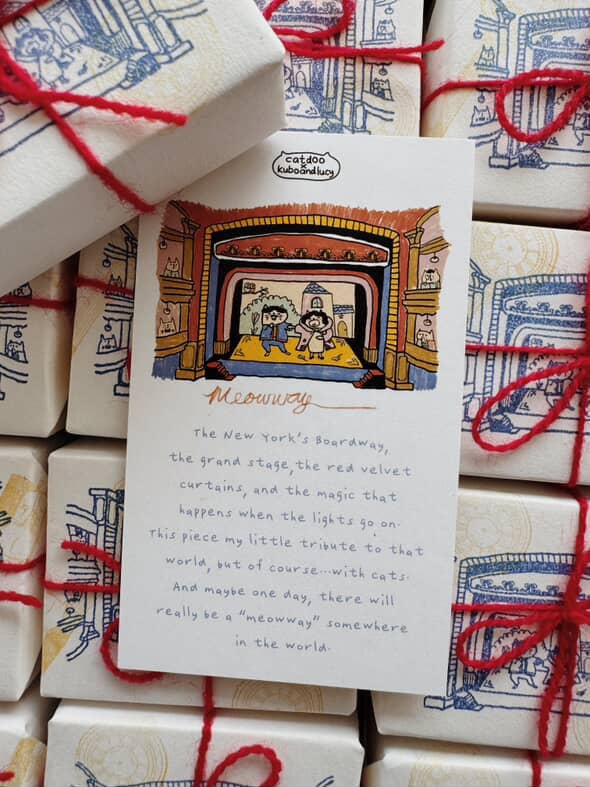 catdoo
x
kuboandlucy
Meowway
The New York's Boardway,
the grand stage, the red velvet
curtains, and the magic that
happens when the lights go on.
This piece my little tribute to that
world, but of course...with cats.
And maybe one day, there will
really be a "meowway" somewhere
in the world.